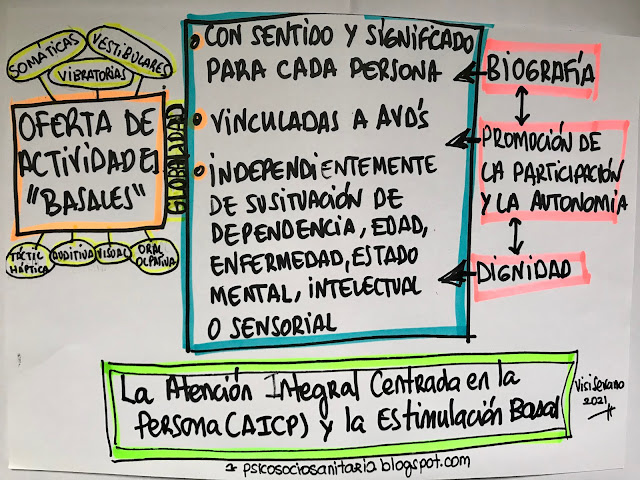 SOMÁTICAS
VESTIBULARES
VIBRATORIAS
OFERTA DE
ACTIVIDADES
"BASALES"
TÁCTIL
HÁPTICA
AUDITIVA
VISUAL
ORAL
OLFATIVA
GLOBALIDAD
CON SENTIDO Y SIGNIFICADO
PARA CADA PERSONA
VINCULADAS A AVD'S
INDEPENDIENTEMENTE
DE SU SITUACIÓN DE
DEPENDENCIA, EDAD,
ENFERMEDAD, ESTADO
MENTAL, INTELECTUAL
O SENSORIAL
BIOGRAFÍA
PROMOCIÓN DE
LA PARTICIPACIÓN
Y LA AUTONOMÍA
DIGNIDAD
La Atención Integral Centrada en la
Persona (AICP) y la Estimulación Basal
Vici Serrano
2021
psicosociosanitaria.blogspot.com